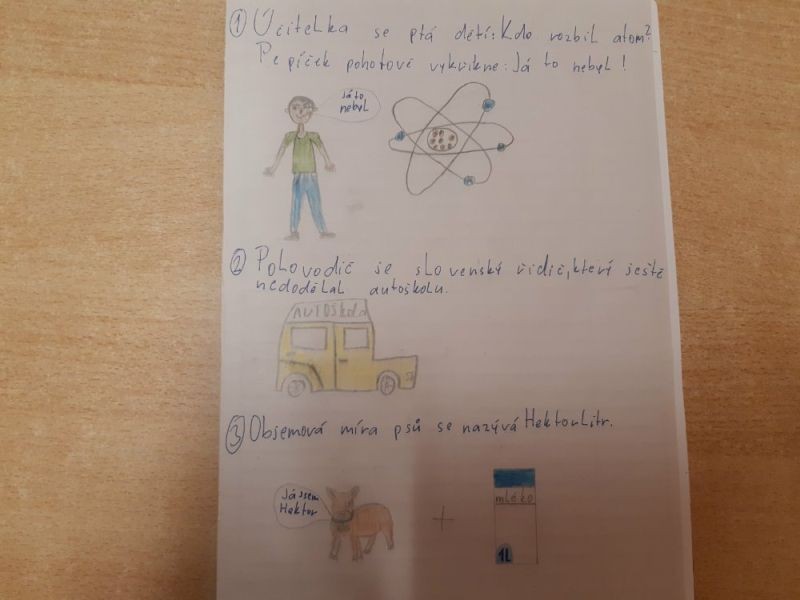 ① Učitelka se ptá dětí: Kdo rozbil atom?
Pepíček pohotově vykřikne: Já to nebyl!
Já to
nebyl
② Polovodič je slovenský řidič, který ještě
nedodělal autoškolu.
AUTOŠkola
③ Objemová míra psů se nazývá HektorLitr.
Já jsem
Hektor
+
mléko
1L